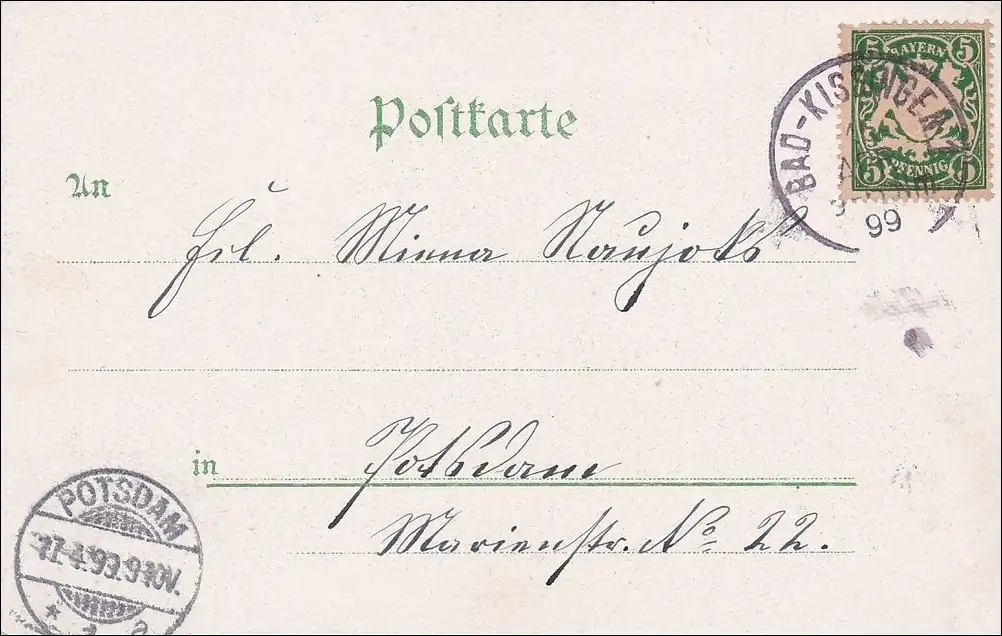 Postkarte
5 BAYERN 5
5 PFENNIG 5
BAD-KISSINGEN 1
99
An
Frl. Minna Naujoks
in Potsdam
Marienstr. No. 22.
POTSDAM
17.4.99.9-10V.
* 1 a